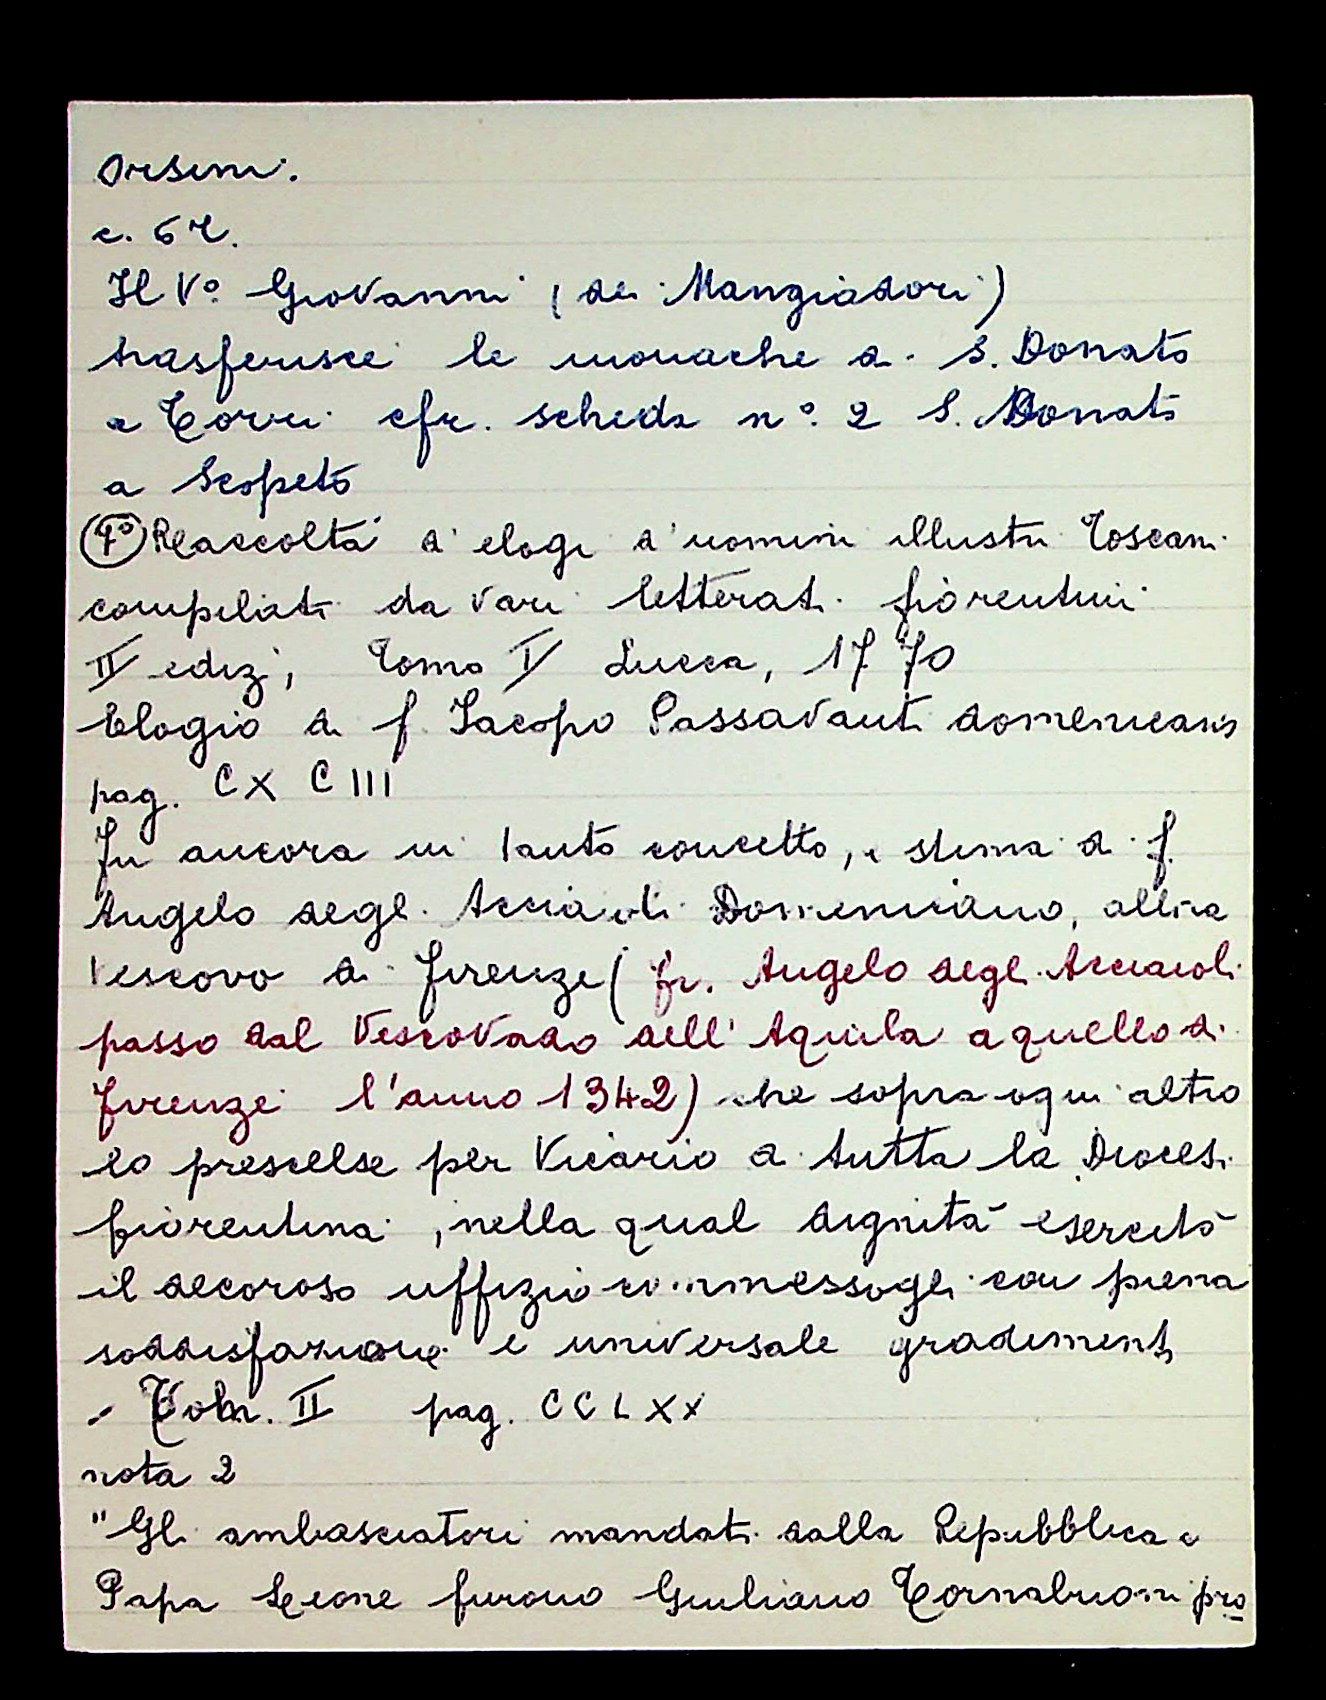 Orsini.
c. 67.
Il Vº Giovanni (dei Mangiadori)
trasferisce le monache a S. Donato
a Torri cfr. scheda nº. 2 S. Donato
a Scopeto
4º Raccolta d'elogi d'uomini illustri Toscani
compilati da vari letterati fiorentini
II ediz, Tomo IV Lucca, 1770
Elogio di f. Jacopo Passavanti domenicano
pag. CXCIII
Fu ancora in tanto concetto, e stima di f.
Angelo degli Acciaioli Domenicano, allora
Vescovo di Firenze (fr. Angelo degli Acciaioli
passo dal Vescovado dell'Aquila a quello di
Firenze l'anno 1342) che sopra ogni altro
lo prescelse per Vicario a tutta la Diocesi
fiorentina, nella qual dignità esercitò
il decoroso uffizio commessogli con piena
soddisfazione e universale gradimento
- Vol. II pag. CCLXX
nota 2
"Gli ambasciatori mandati dalla Repubblica a
Papa Leone furono Giuliano Tornabuoni pro